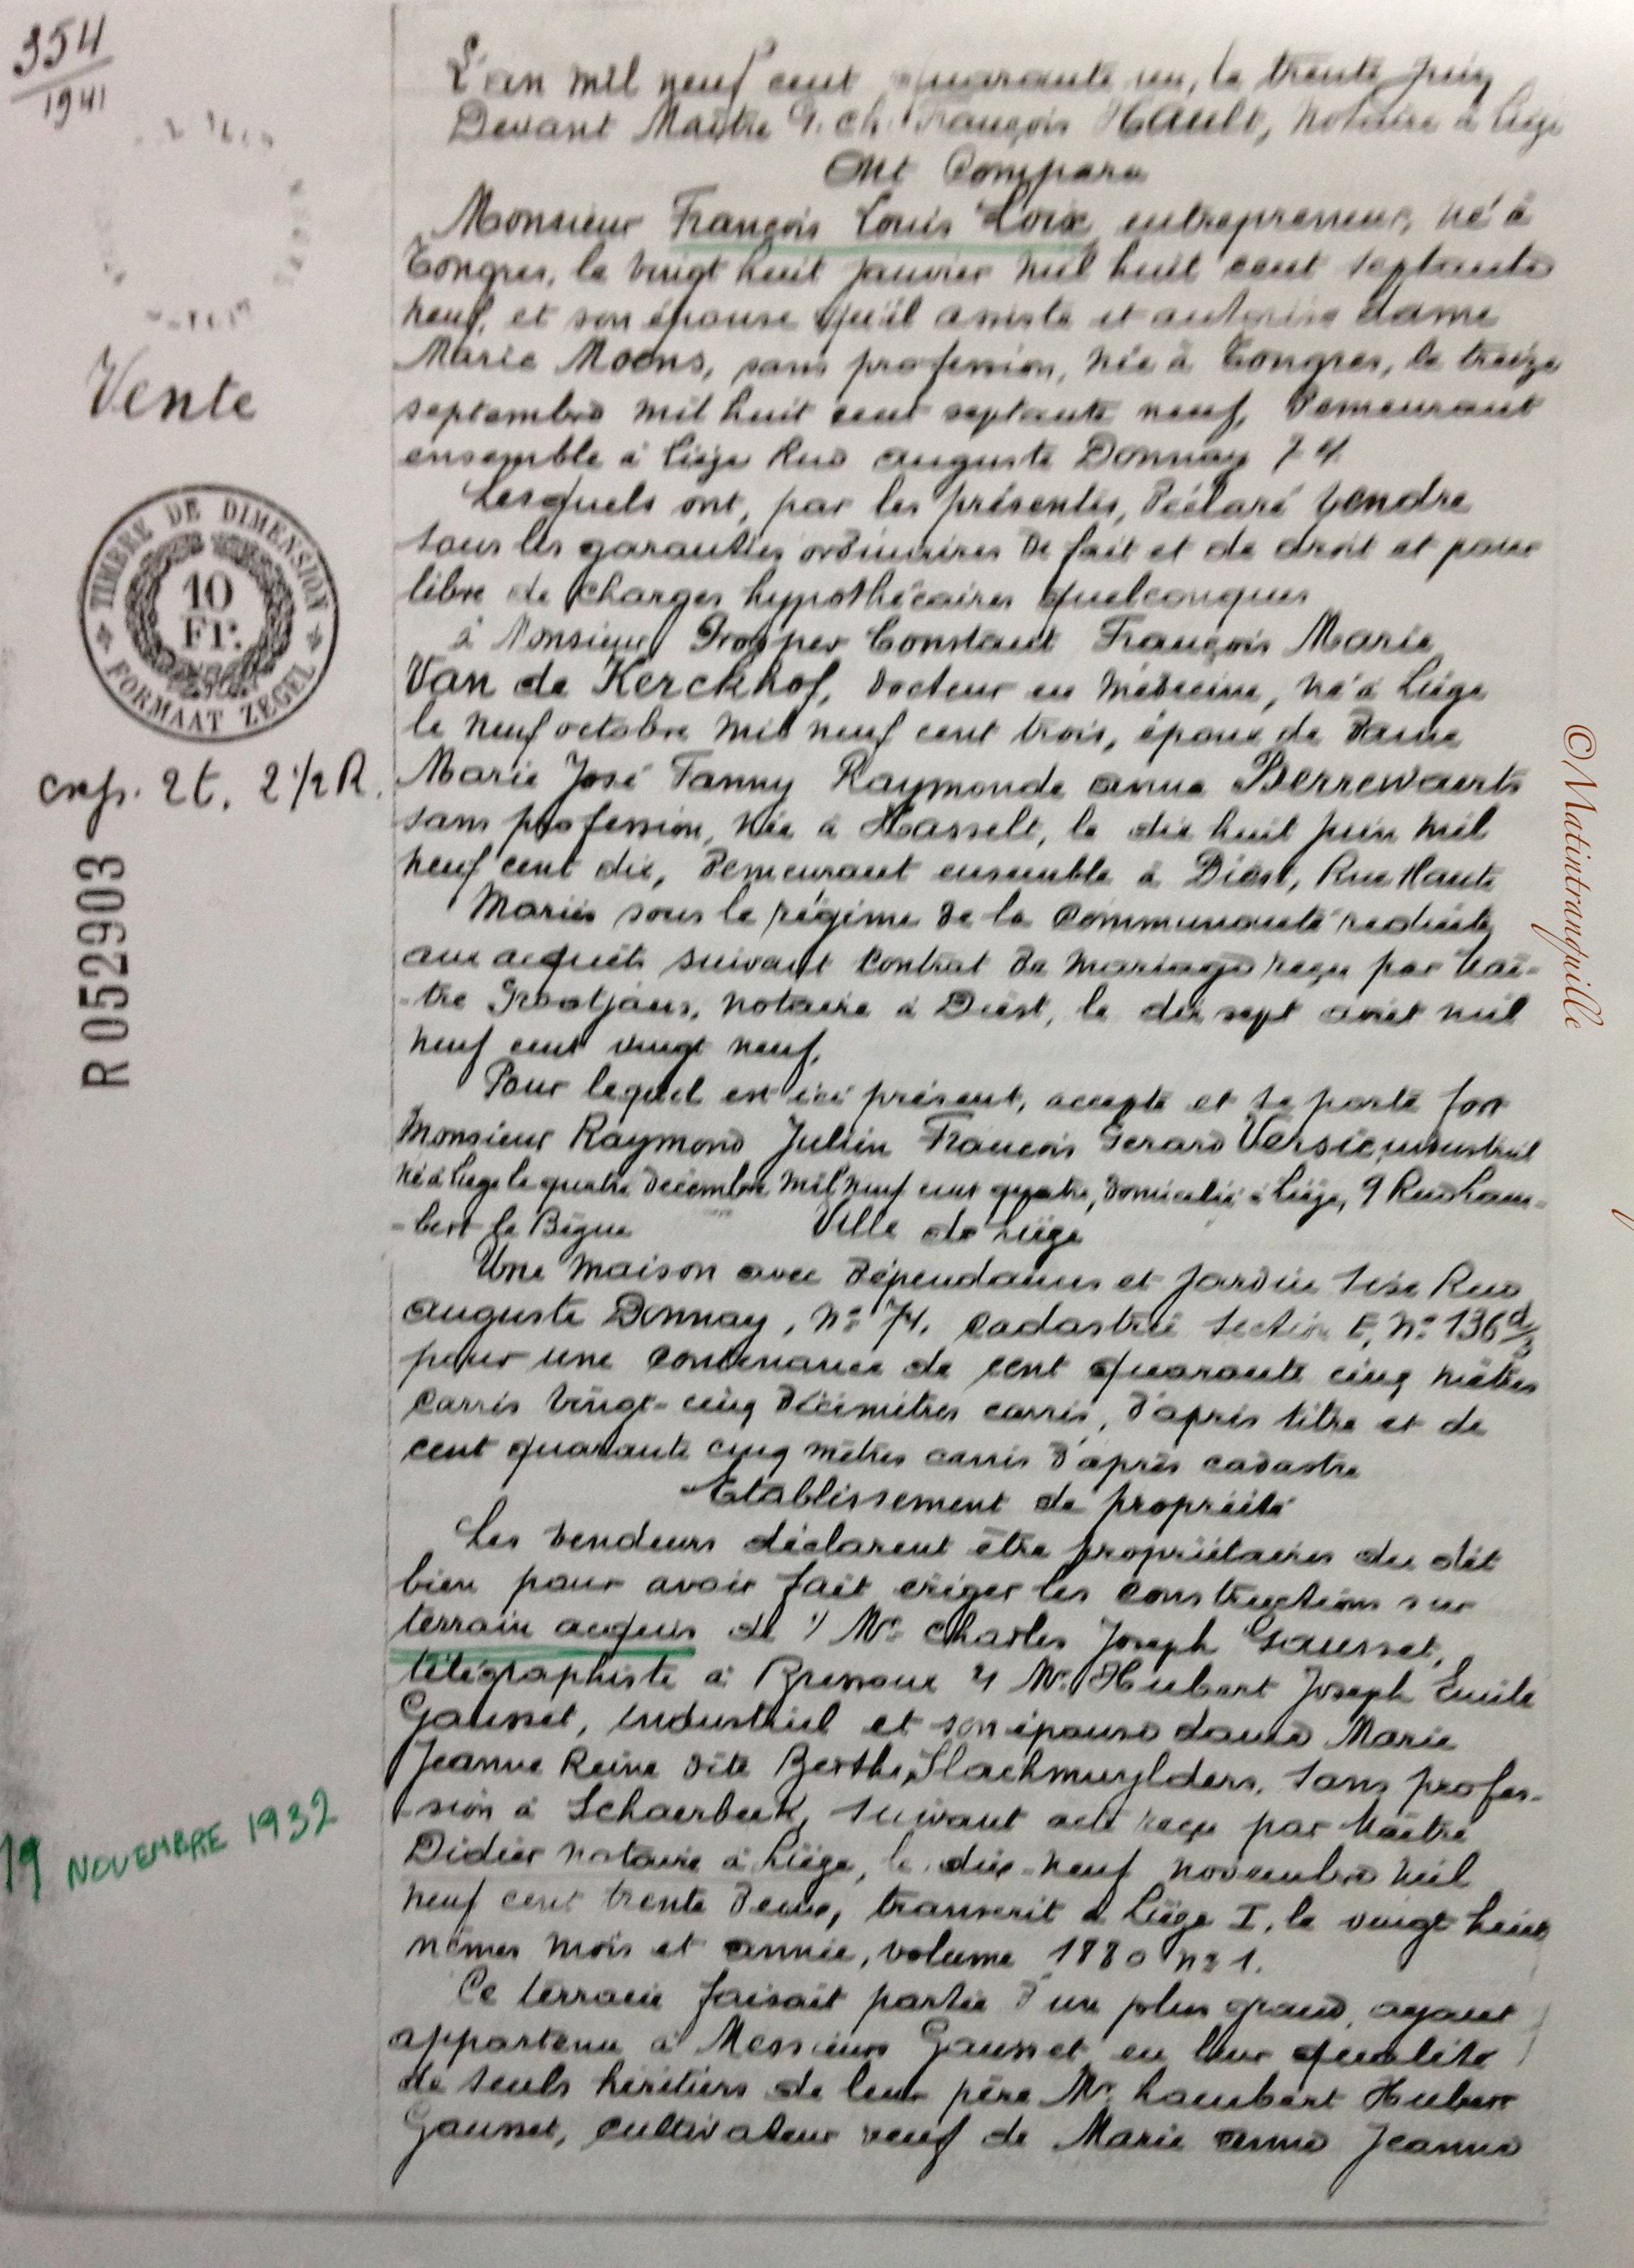 354
1941
L'an mil neuf cent quarante un, le trente juin
Devant Maître G. Ch. François Hault, notaire à Liège
Ont Comparu
Monsieur François Louis Loix, entrepreneur, né à
Tongres, le vingt huit janvier mil huit cent septante
neuf, et son épouse qu'il assiste et autorise dame
Marie Moens, sans profession, née à Tongres, le treize
septembre mil huit cent septante neuf, demeurant
ensemble à Liège Rue Auguste Donnay 74
Lesquels ont, par les présentes, déclaré vendre
sous les garanties ordinaires de fait et de droit et pour
libre de charges hypothécaires quelconques
à Monsieur Prosper Constant François Marie
Van de Kerckhof, docteur en médecine, né à Liège
le neuf octobre mil neuf cent trois, époux de Dame
Marie José Fanny Raymonde Anna Berrewaerts
sans profession, née à Hasselt, le dix huit juin mil
neuf cent dix, demeurant ensemble à Diest, Rue Haute
Mariés sous le régime de la communauté réduite
aux acquêts suivant contrat de mariage reçu par Maî-
-tre Grootjans, notaire à Diest, le dix sept août mil
neuf cent vingt neuf.
Pour lequel est ici présent, accepte et se porte fort
Monsieur Raymond Julien François Gerard Versie, industriel
né à Liège le quatre décembre mil neuf cent quatre, domicilié à Liège, 9 Rue Lam-
-bert le Bègue Ville de Liège
Une maison avec dépendances et jardin sise Rue
Auguste Donnay, n° 74, cadastrée section E, n° 136 d/3
pour une contenance de cent quarante cinq mètres
carrés vingt-cinq décimètres carrés, d'après titre et de
cent quarante cinq mètres carrés d'après cadastre
Etablissement de propriété
Les vendeurs déclarent être propriétaires du dit
bien pour avoir fait ériger les constructions sur
terrain acquis de 1/ Mr Charles Joseph Gausset,
télégraphiste à Bressoux 2/ Mr Hubert Joseph Emile
Gausset, industriel et son épouse dame Marie
Jeanne Reine dite Berthe Slachmuylders, sans profes-
-sion à Schaerbeek, suivant acte reçu par Maître
Didier notaire à Liège, le dix-neuf novembre mil
neuf cent trente deux, transcrit à Liège I, le vingt huit
mêmes mois et année, volume 1880 n° 1.
Ce terrain faisait partie d'un plus grand, ayant
appartenu à Messieurs Gausset en leur qualité
de seuls héritiers de leur père Mr Lambert Hubert
Gausset, cultivateur veuf de Marie Anne Jeanne
Vente
TIMBRE DE DIMENSION
10
Fr.
FORMAAT ZEGEL
2t. 2 1/2 R.
R 052903
19 NOVEMBRE 1932
©Matintranquille